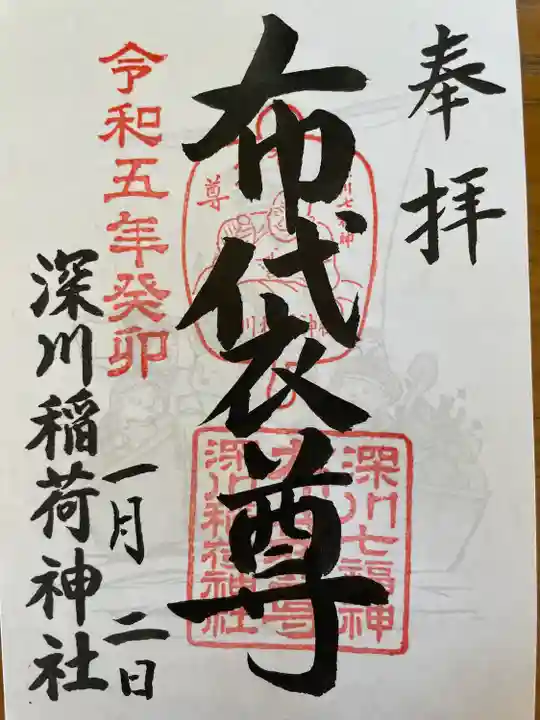 奉拝
布袋尊
深川七福神
深川稲荷神社
令和五年癸卯
一月二日
深川稲荷神社